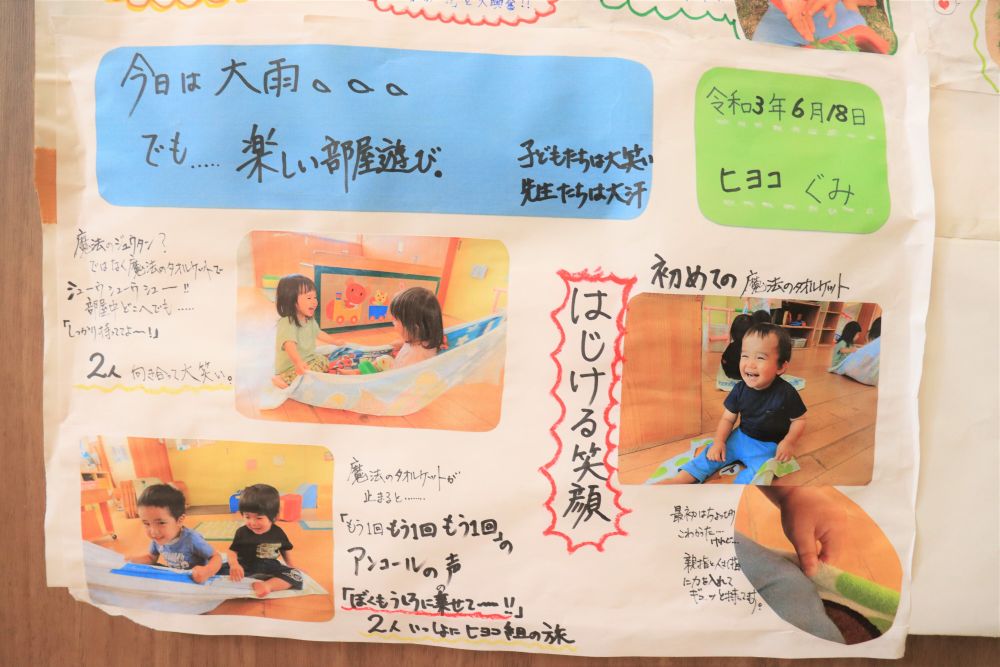 今日は大雨。。。
でも..... 楽しい部屋遊び。
子どもたちは大笑い
先生たちは大汗
令和3年6月18日
ヒヨコ ぐみ
魔法のジュウタン?
ではなく魔法のタオルケットで
シューウ シューウ シュー!!
部屋中どこへでも.....
「しっかり持っててよ〜!!」
2人 向き合って大笑い。
初めての 魔法のタオルケット
はじける笑顔
魔法のタオルケットが
止まると........
「もう1回 もう1回 もう1回」の
アンコールの声
「ぼくもうしろに乗せてー!!」
2人いっしょにヒヨコ組の旅
最初はちょっぴり
こわかった... けれど...
親指と人さし指
に力を入れて
ギュッと持ってます。